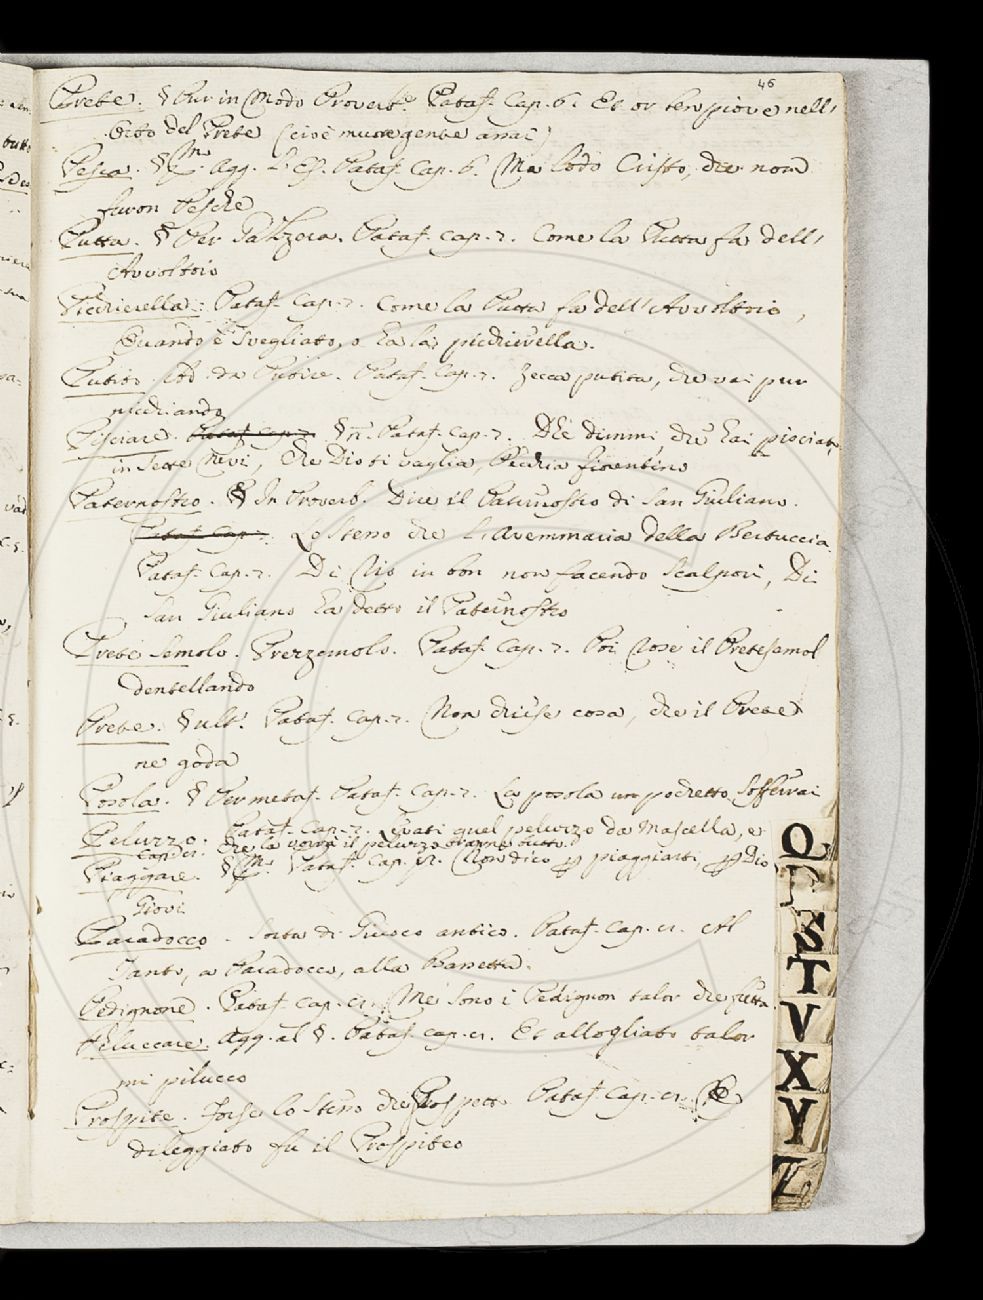 46
Prete. § Pur in Modo Proverb.e Pataf. Cap. 6. Et or ben piove nell'
Orto del Prete (cioè muore gente assai)
Pesca. § Agg. Pataf. Cap. 6. Ma lodo Cristo, che non
furon Pesche
Putta. § Per Gazzera. Pataf. Cap. 7. Come la Putta fa dell'
Avoltoio
Picchierella. Pataf. Cap. 7. Come la Putta fa dell'Avoltoio,
Quando è svegliato, o ha la picchierella.
Putito. Add. da Putire. Pataf. Cap. 7. Zecca putita, che vai pur
nicchiando
Pisciare. Pataf. Cap. 7. § n. Pataf. Cap. 7. Dhè dimmi, che hai pisciato
in Sette Nevi, Che Dio ti vaglia, Picchia fiorentino
Paternostro. § In Proverb. Dire il Paternostro di San Giuliano.
Pataf. Cap. 7. Lo stesso che L'Avemmaria della Bertuccia.
Pataf. Cap. 7. Di Cio in bon non facendo Scalpori, Di
San Giuliano ha detto il Paternostro
Prete Semolo. Prezzemolo. Pataf. Cap. 7. Poi Rose il Pretesemol
dentellando
Prete. § ult. Pataf. Cap. 7. Non chiese cosa, che il Prete
ne goda
Posola. § Per metaf. Pataf. Cap. 7. La posola un pochetto
Peluzzo. Pataf. Cap. 7. Levati quel peluzzo da Mascella, e
Cap. che la il peluzzo
Piaggiare. § Pataf. Cap. Non dico piaggiarti, Dio
Giovi
Paradocco. Sorta di Giuoco antico. Pataf. Cap. Al
Tanto, a Paradocco, alla Bassetta.
Pedignone. Pataf. Cap. Me sono i Pedignon talor
Piluccare. Agg. al §. Pataf. Cap. Et allogliato talor
mi pilucco
Prospite. Forse lo stesso che Prospetto Pataf. Cap.
dileggiato fu il Prospiteo
Q
S
T
V
X
Y
Z